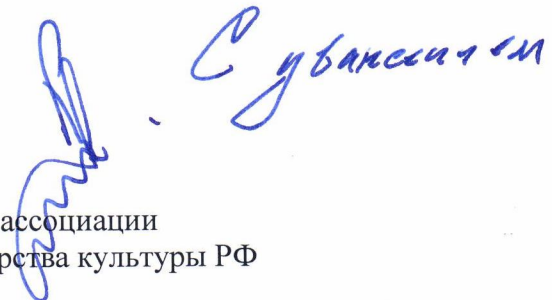 С уважением
ассоциации
рства культуры РФ